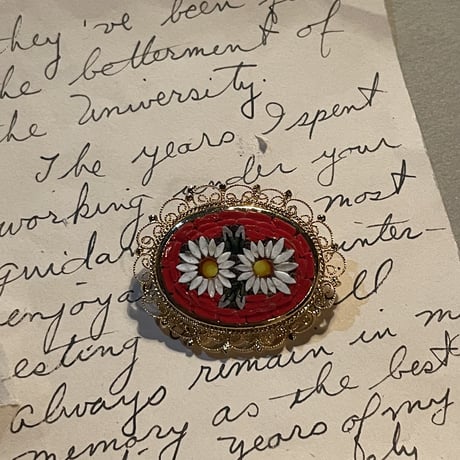 they've been
the betterment of
the University.
The years I spent
working under your
guidan most
enjoya inter-
esting ll
always remain in m
memory as the best
years of my